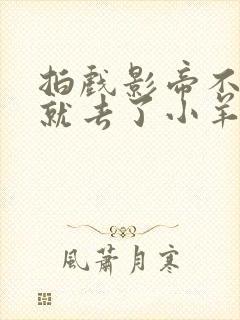 拍戏影帝不
就去了小羊
風蕭月寒